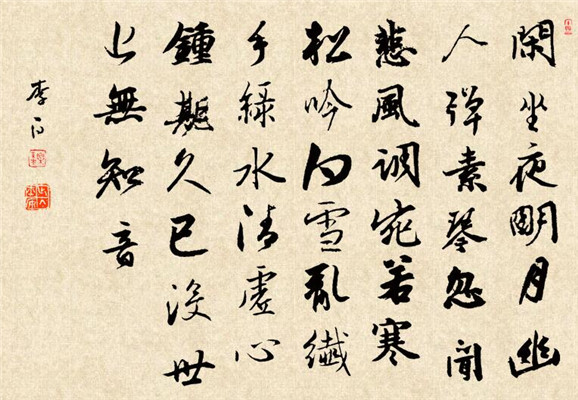 閑坐夜明月幽
人彈素琴忽聞
悲風調宛若寒
松吟白雪亂纖
手綠水清虛心
鍾期久已沒世
上無知音
李白